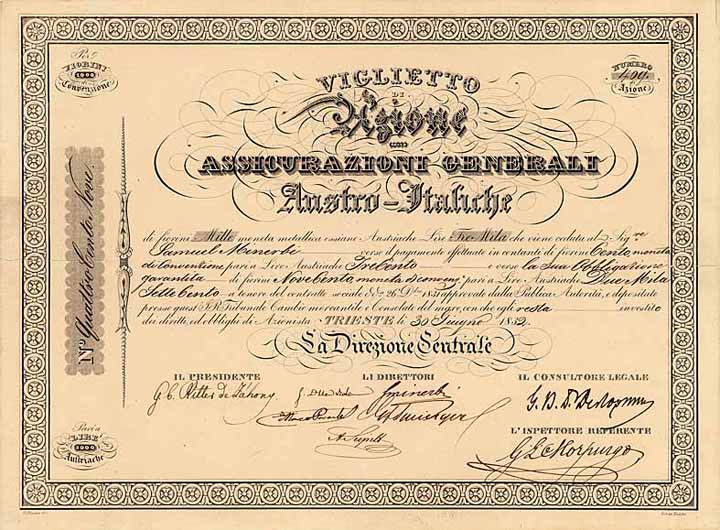 Per
FIORINI
1000
di
Convenzione
NUMERO
409.
Azione
VIGLIETTO
DI
Azione
ASSICURAZIONI GENERALI
Austro-Italiche
da fiorini Mille moneta metallica ossiano Austriache Lire Tre Mila che viene ceduta al Sig.re
Samuel Minerbi verso il pagamento effettuato in contanti di fiorini Cento moneta
di Convenzione pari a Lire Austriache Trecento e verso la sua Obbligazione
garantita di fiorini Novecento moneta di conven.e pari a Lire Austriache Due Mila
Sette Cento a tenore del contratto sociale 26 1831 approvato dalla Pubblica Autorità, e depositato
presso quest' I.R. Tribunale Cambio mercantile e Consolato del mare, con che egli resta investito
dei diritti, ed obblighi di Azionista. TRIESTE li 30 Giugno 1832.
La Direzione Centrale
IL PRESIDENTE
LI DIRETTORI
IL CONSULTORE LEGALE
G. C. Ritter de Záhony
Minerbi
L'ISPETTORE REFERENTE
Morpurgo
Nº Quattro Cento Nove.
Pari a
LIRE
3000
Austriache